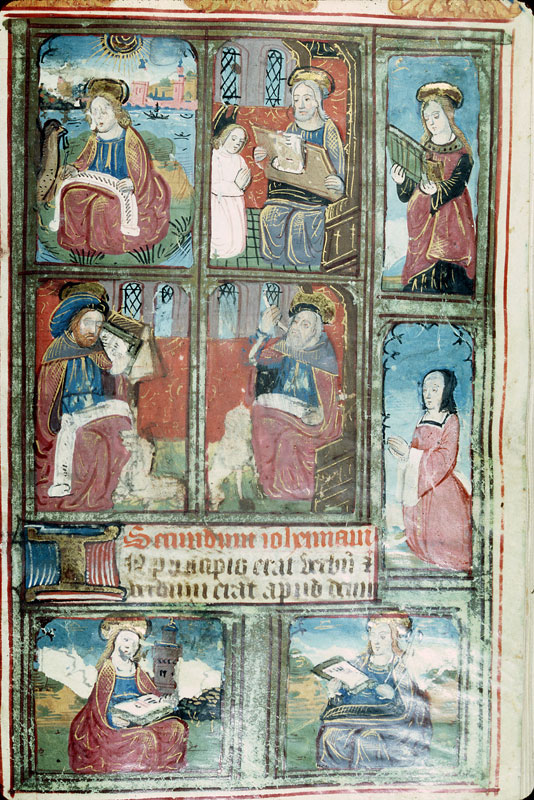 Secundum iohannem
IN principio erat verbũ ⁊
verbum erat apud deum